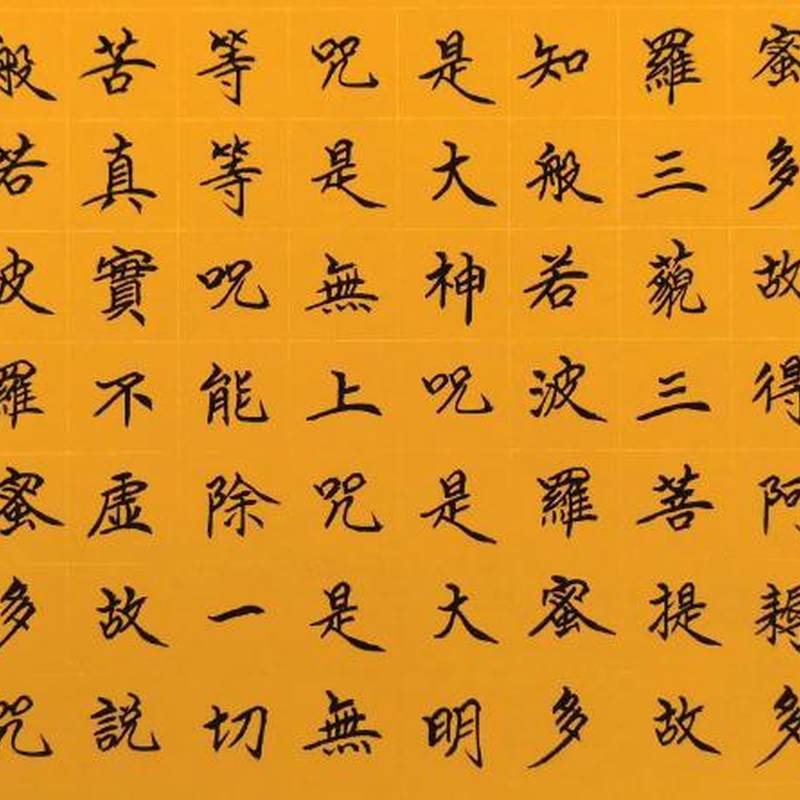 蜜多故得阿耨多
羅三藐三菩提故
知般若波羅蜜多
是大神咒是大明
咒是無上咒是無
等等咒能除一切
苦真實不虛故說
般若波羅蜜多咒